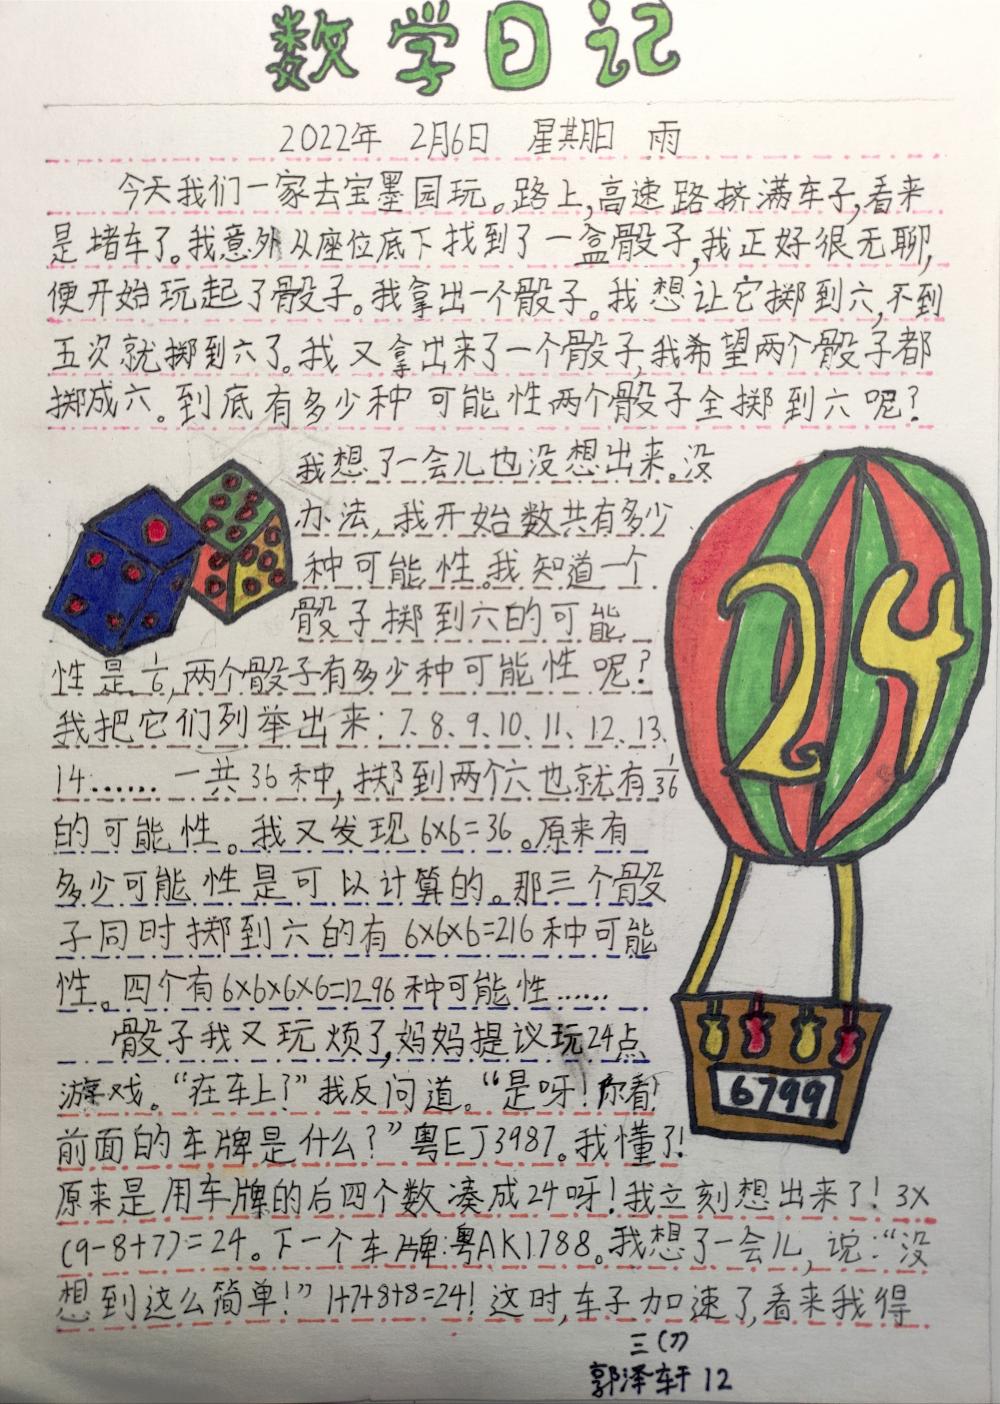 数学日记
2022年 2月6日 星期日 雨
今天我们一家去宝墨园玩。路上,高速路挤满车子,看来
是堵车了。我意外从座位底下找到了一盒骰子,我正好很无聊,
便开始玩起了骰子。我拿出一个骰子。我想让它掷到六,不到
五次就掷到六了。我又拿出来了一个骰子,我希望两个骰子都
掷成六。到底有多少种可能性两个骰子全掷到六呢?
我想了一会儿也没想出来。没
办法,我开始数共有多少
种可能性。我知道一个
骰子掷到六的可能
性是1/6,两个骰子有多少种可能性呢?
我把它们列举出来:7、8、9、10、11、12、13、
14…… 一共36种,掷到两个六也就有1/36
的可能性。我又发现6×6=36。原来有
多少可能性是可以计算的。那三个骰
子同时掷到六的有6×6×6=216种可能
性。四个有6×6×6×6=1296种可能性……
骰子我又玩烦了,妈妈提议玩24点
游戏。“在车上?”我反问道。“是呀!你看!
前面的车牌是什么?”粤EJ3987。我懂了!
原来是用车牌的后四个数凑成24呀!我立刻想出来了!3×
(9-8+7)=24。下一个车牌:粤AK1788。我想了一会儿,说:“没
想到这么简单!”1+7+8+8=24!这时,车子加速了,看来我得
24
6799
三(7)
郭泽轩 12